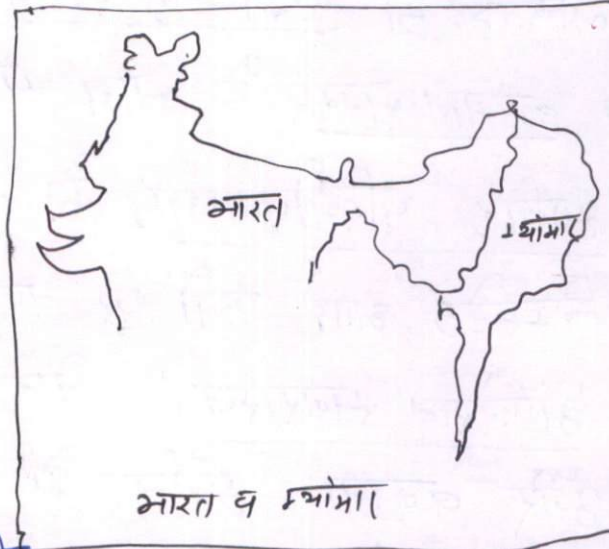 भारत
म्यांमार
भारत व म्यांमार